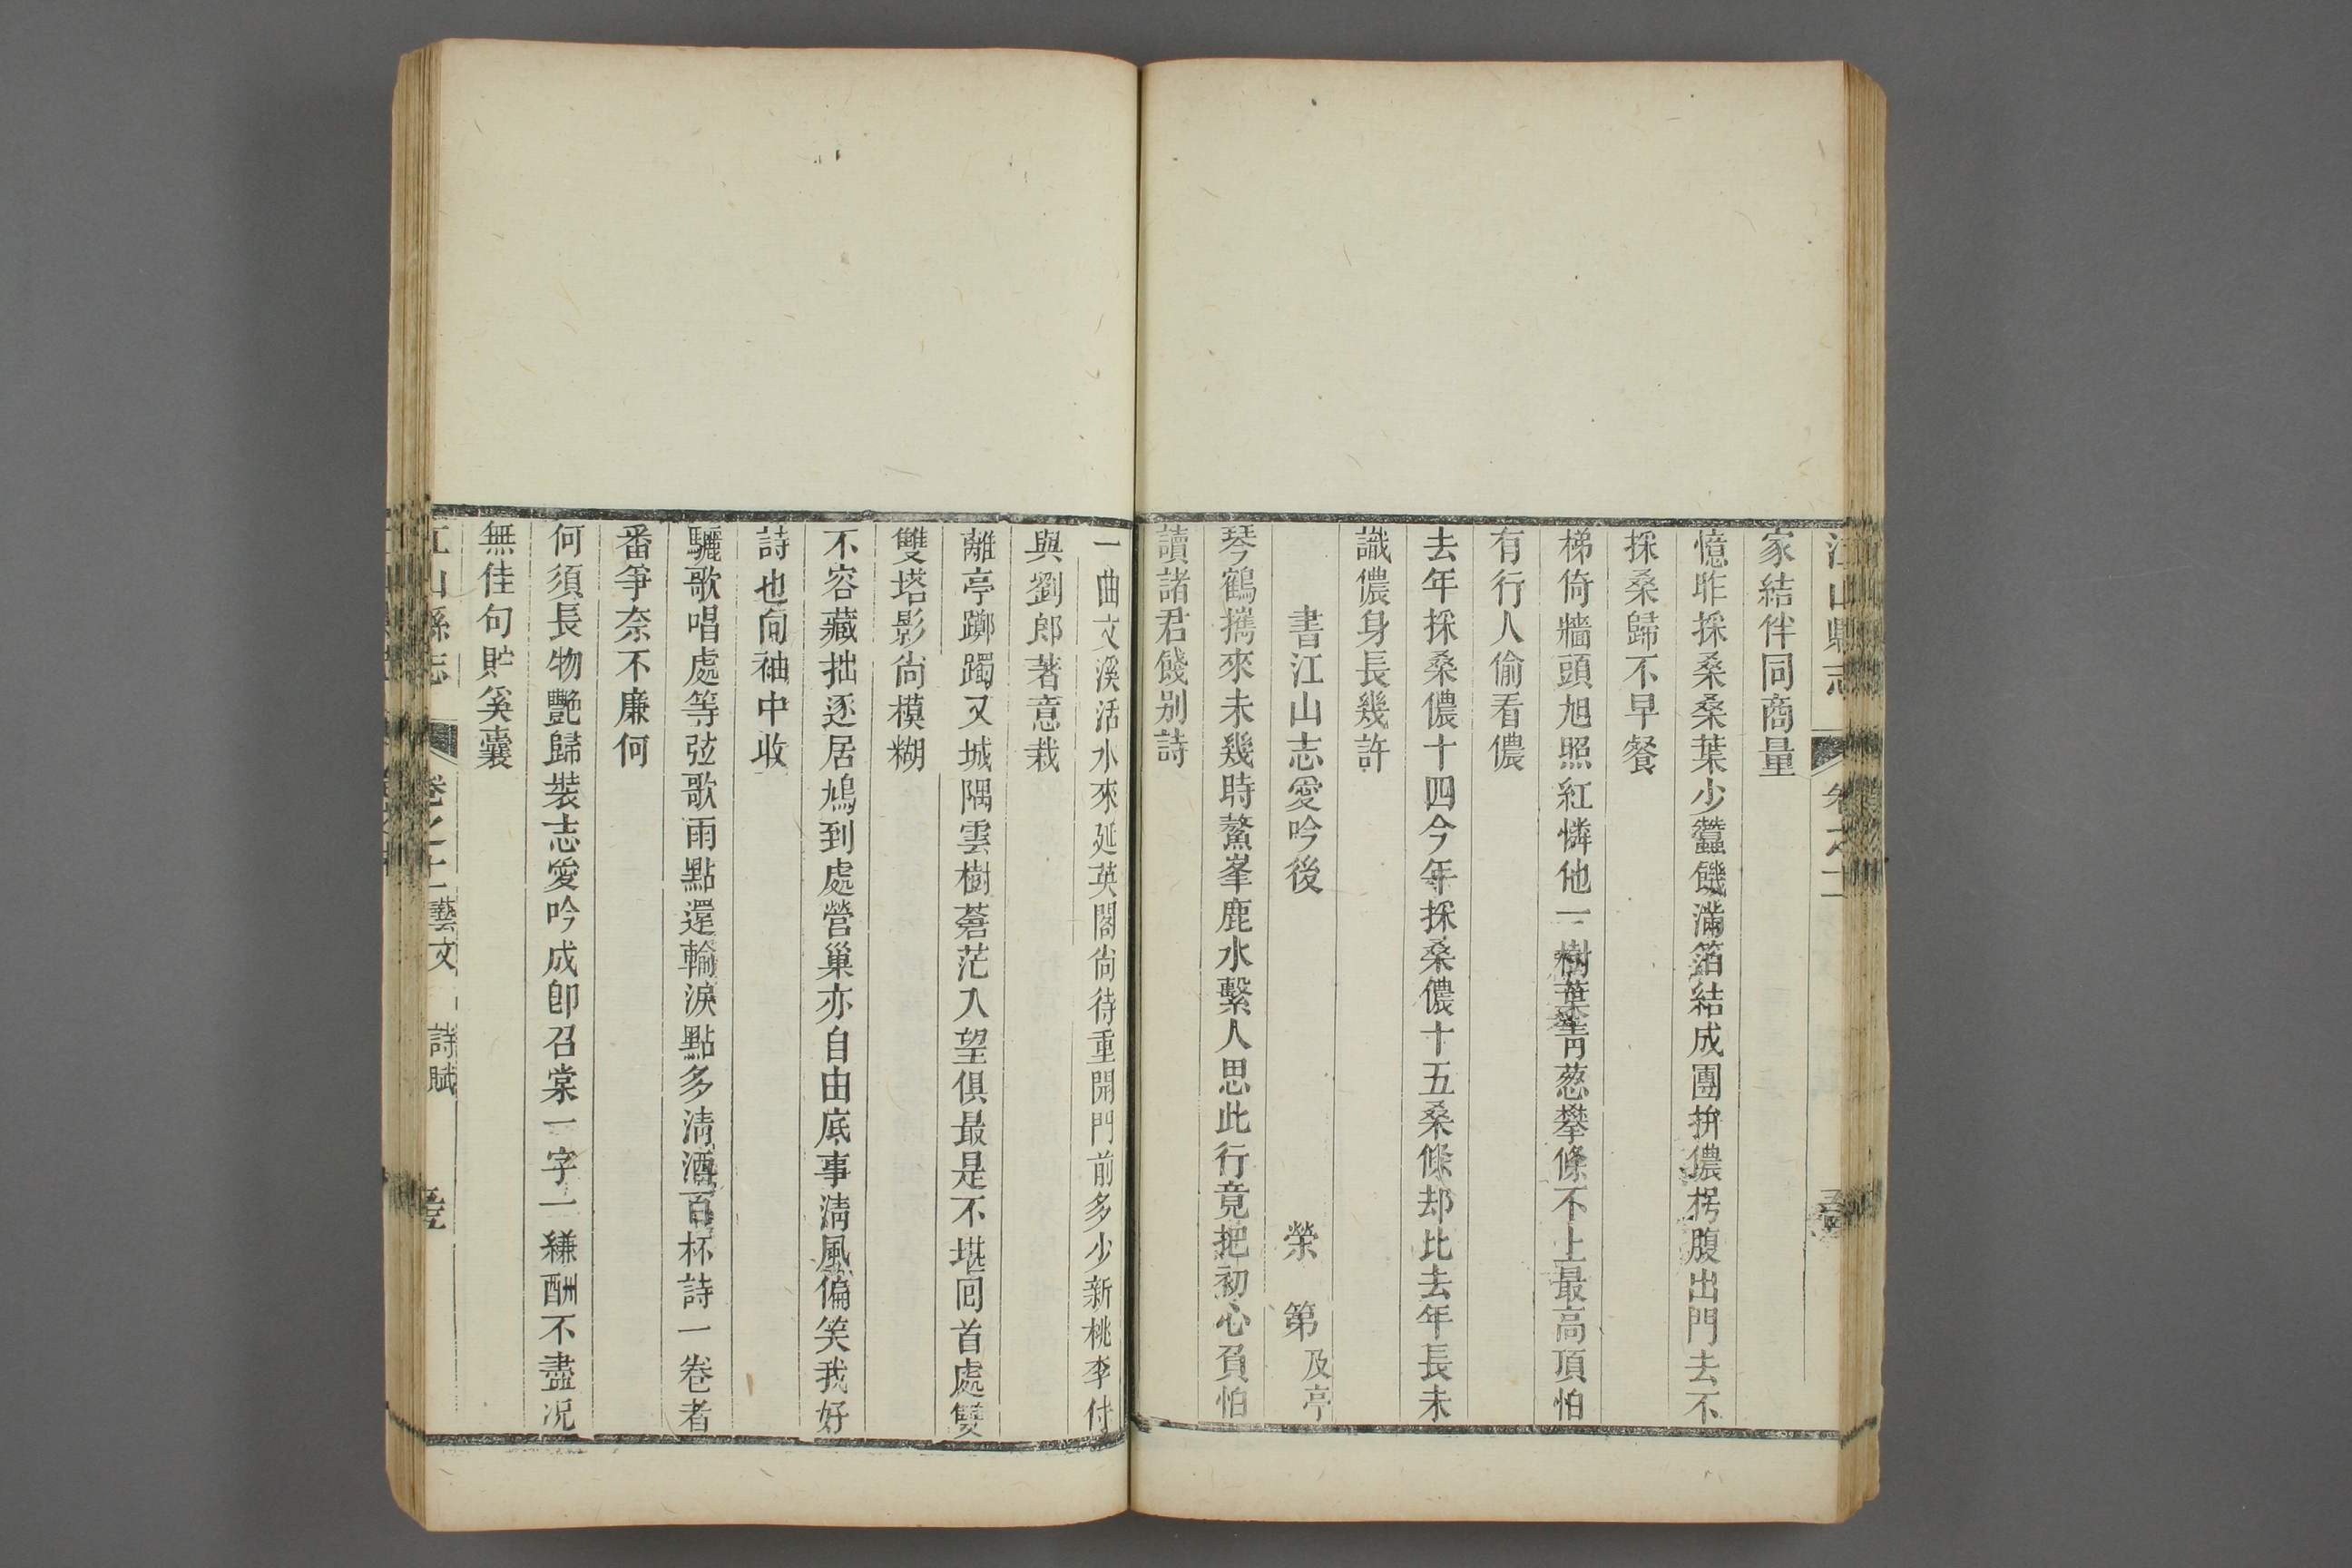 江山縣志 卷之十二
家結伴同商量
憶昨採桑桑葉少蠶饑滿箔結成團拚儂枵腹出門去不
採桑歸不早餐
梯倚牆頭旭照紅憐他一樹葉青葱攀條不上最高頂怕
有行人偷看儂
去年採桑儂十四今年採桑儂十五桑條却比去年長未
識儂身長幾許
書江山志愛吟後 榮 第 及亭
琴鶴攜來未幾時鰲峯鹿水繫人思此行竟把初心負怕
讀諸君餞別詩
一曲文溪活水來延英閣尙待重開門前多少新桃李付
與劉郎著意栽
離亭躑躅又城隅雲樹蒼茫入望俱最是不堪回首處雙
雙塔影尙模糊
不容藏拙逐居鳩到處營巢亦自由底事淸風偏笑我好
詩也向袖中收
驪歌唱處等弦歌雨點還輸淚點多淸酒百杯詩一卷者
番爭奈不廉何
何須長物艷歸裝志愛吟成卽召棠一字一縑酬不盡况
無佳句貯奚囊
江山縣志 卷之十二藝文 詩賦